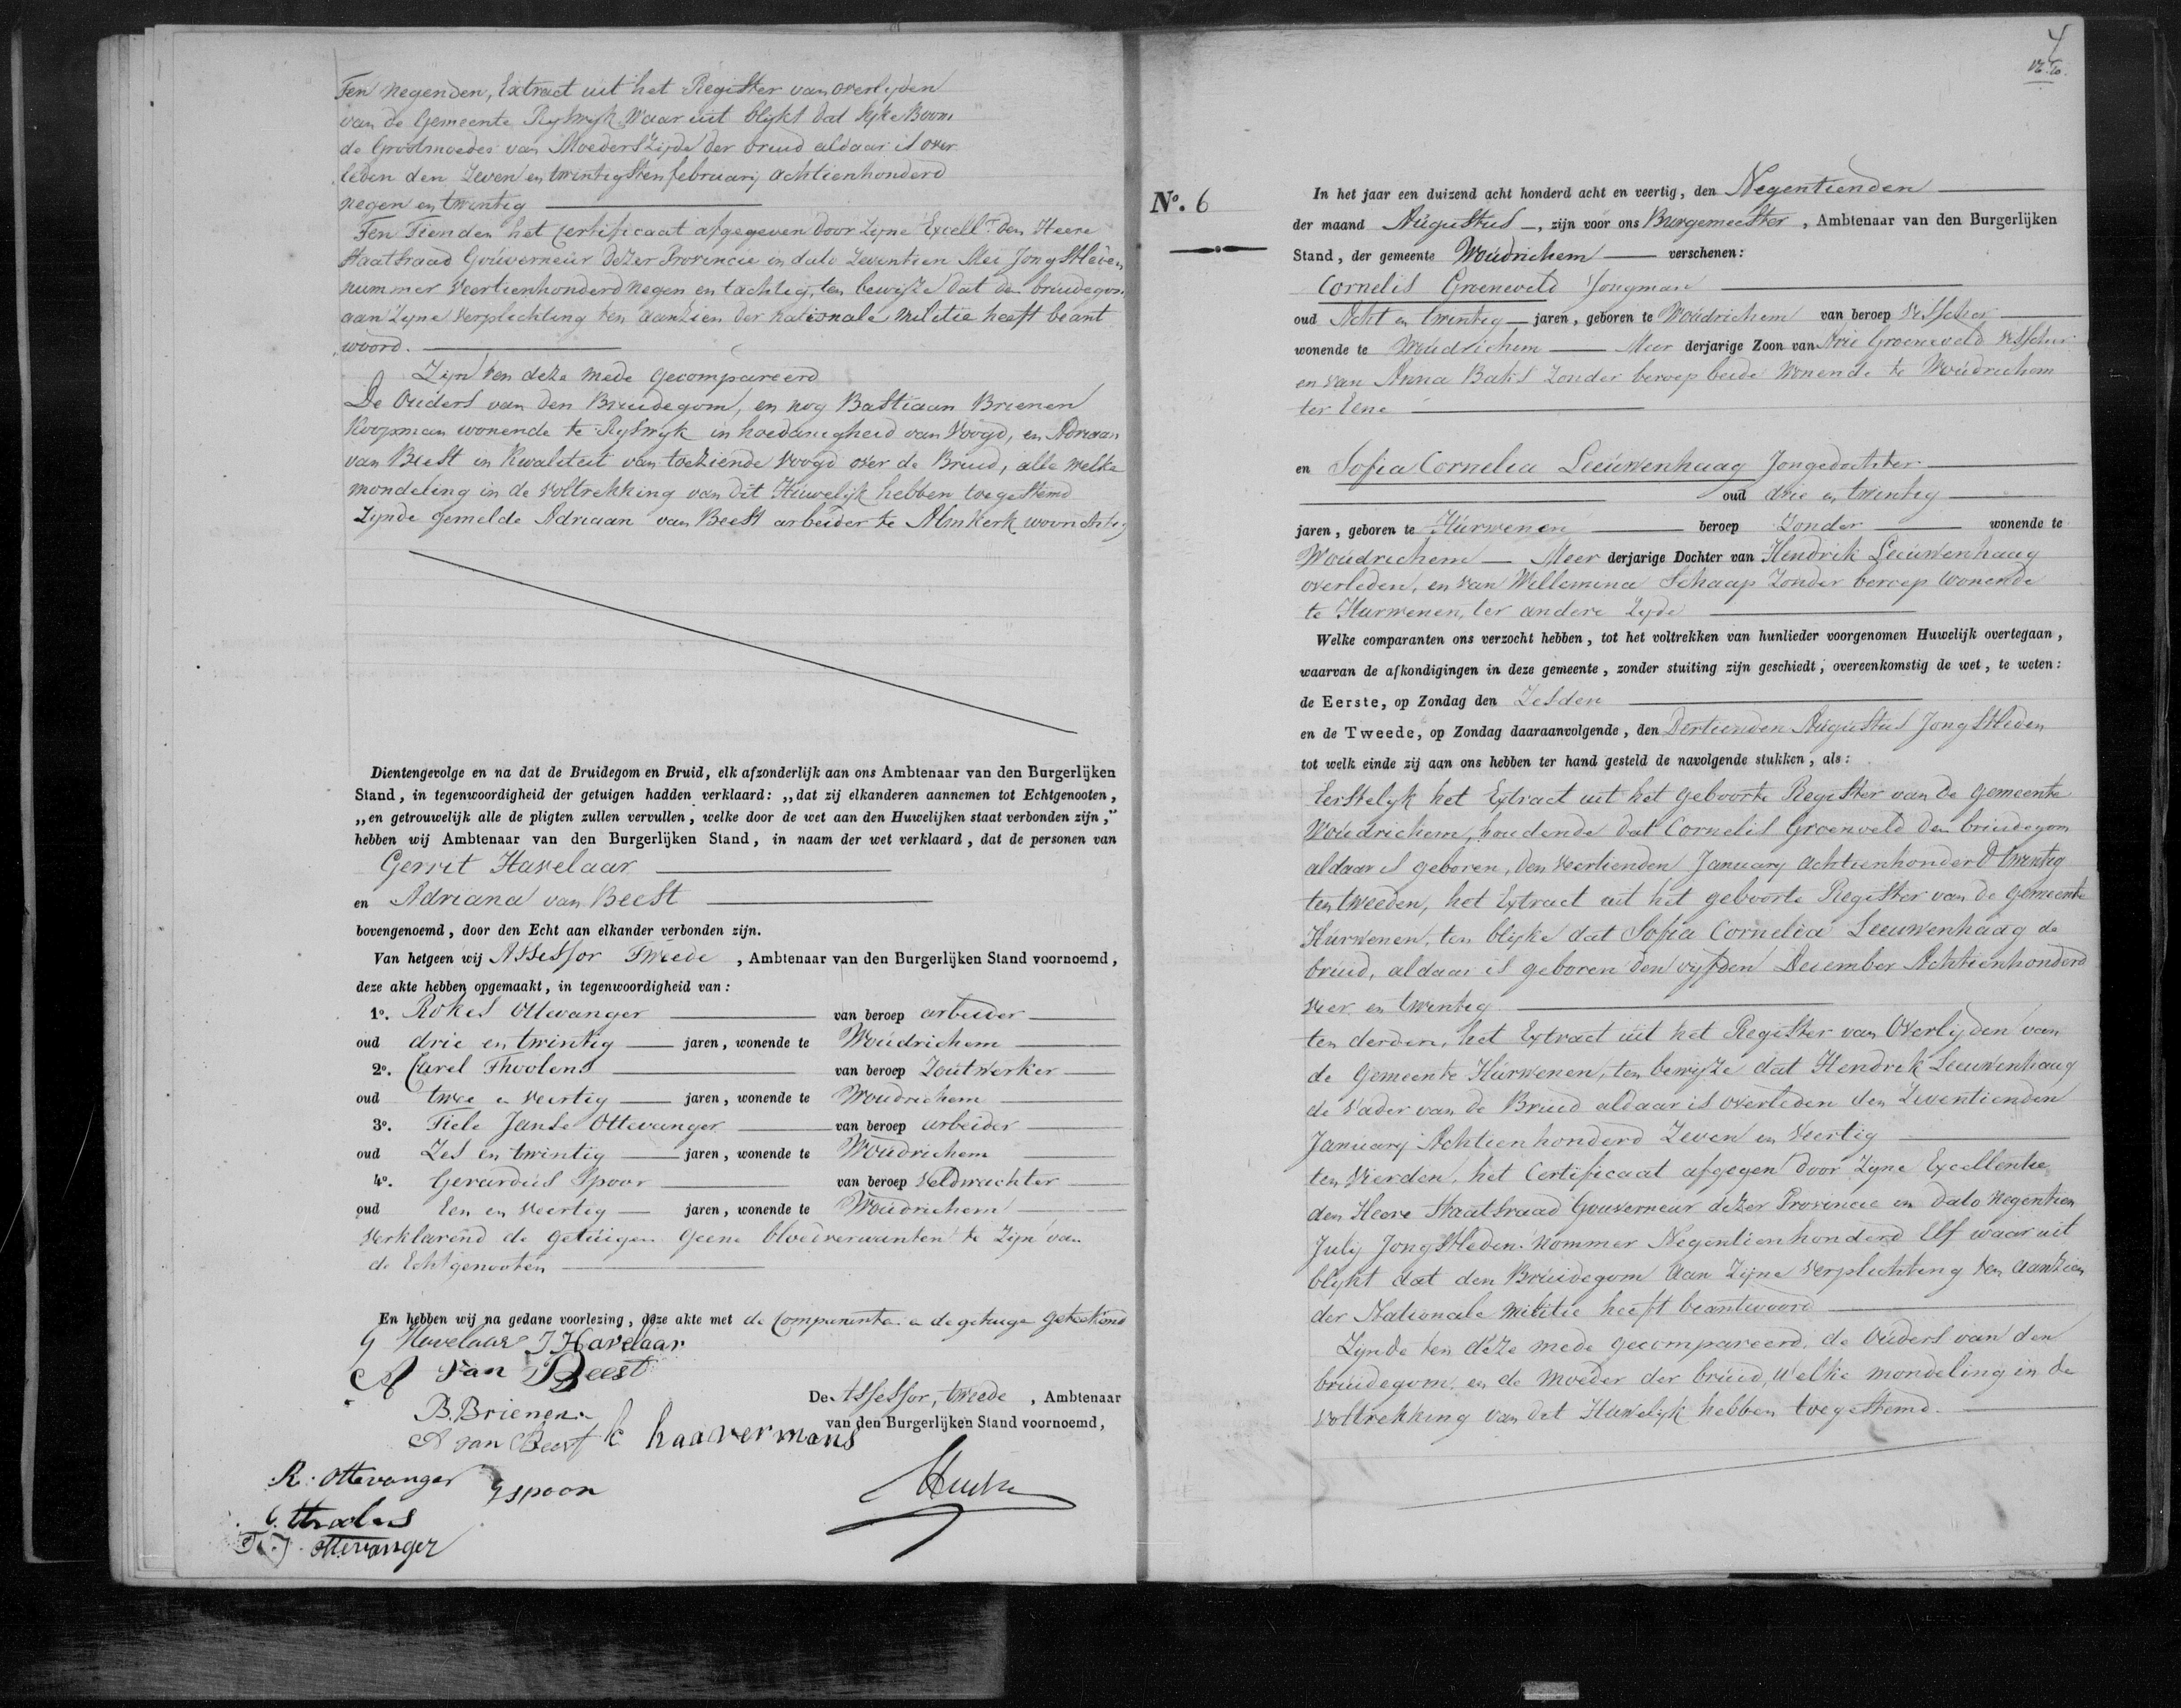 Ten negenden, Extract uit het Register van overlyden
van de Gemeente Ryswyk Waar uit blykt dat Sijke Boom
de Grootmoeder van Moeders Zijde der bruid aldaar is over
leden den Zeven en twintigsten february achtienhonderd
negen en twintig
Ten Tienden het certificaat afgegeven door Zyne Excell. den Heere
Staatsraad Gouverneur dezer Provincie in dato Zeventien Mei Jongstleden
nummer veertienhonderd negen en tachtig, ten bewijze dat de bruidegom
aan Zyne verplichting ten aanzien der Nationale Militie heeft beant
woord.
Zijn ten deze mede gecompareerd
De Ouders van den Bruidegom, en nog Bastiaan Brienen
Koopman wonende te Ryswyk in hoedanigheid van Voogd, en Adriaan
van Beest in Kwaliteit van toeziende voogd over de Bruid, alle welke
mondeling in de voltrekking van dit Huwelijk hebben toegestemd
Zynde gemelde Adriaan van Beest arbeider te Almkerk woonachtig
Dientengevolge en na dat de Bruidegom en Bruid, elk afzonderlijk aan ons Ambtenaar van den Burgerlijken
Stand, in tegenwoordigheid der getuigen hadden verklaard: „dat zij elkanderen aannemen tot Echtgenooten,
„en getrouwelijk alle de pligten zullen vervullen, welke door de wet aan den Huwelijken staat verbonden zijn,”
hebben wij Ambtenaar van den Burgerlijken Stand, in naam der wet verklaard, dat de personen van
Gerrit Havelaar
en Adriana van Beest
bovengenoemd, door den Echt aan elkander verbonden zijn.
Van hetgeen wij Assessor Tweede, Ambtenaar van den Burgerlijken Stand voornoemd,
deze akte hebben opgemaakt, in tegenwoordigheid van:
1o. Rokes Ottevanger van beroep arbeider
oud drie en twintig jaren, wonende te Woudrichem
2o. Carel Thoolens van beroep Zoutwerker
oud twee en veertig jaren, wonende te Woudrichem
3o. Tiele Janse Ottevanger van beroep arbeider
oud Zes en twintig jaren, wonende te Woudrichem
4o. Gerardus Spoor van beroep Veldwachter
oud Een en veertig jaren, wonende te Woudrichem
verklarend de getuigen geene bloedverwanten te Zijn van
de Echtgenooten
En hebben wij na gedane voorlezing, deze akte met de Comparanten en de getuige geteekend
G Havelaar J Havelaar
A van Beest
B. Brienen
A van Beest C haavermans
R: Ottevanger G spoor
C. Thoolens
T. J. Ottevanger
De Assessor, tweede, Ambtenaar
van den Burgerlijken Stand voornoemd,
4
No. 6
In het jaar een duizend acht honderd acht en veertig, den Negentienden
der maand Augustus, zijn voor ons Burgemeester, Ambtenaar van den Burgerlijken
Stand, der gemeente Woudrichem verschenen:
Cornelis Groeneveld Jongman
oud Acht en twintig jaren, geboren te Woudrichem van beroep Visscher
wonende te Woudrichem Meer derjarige Zoon van Arie Groeneveld visscher
en van Anna Bats Zonder beroep beide wonende te Woudrichem
ter Eene
en Sofia Cornelia Leeuwenhaag Jongedochter
oud drie en twintig
jaren, geboren te Hurwenen beroep Zonder wonende te
Woudrichem Meer derjarige Dochter van Hendrik Leeuwenhaag
overleden, en van Willemina Schaap Zonder beroep wonende
te Hurwenen, ter andere Zyde
Welke comparanten ons verzocht hebben, tot het voltrekken van hunlieder voorgenomen Huwelijk overtegaan,
waarvan de afkondigingen in deze gemeente, zonder stuiting zijn geschiedt, overeenkomstig de wet, te weten:
de Eerste, op Zondag den Zesden
en de Tweede, op Zondag daaraanvolgende, den Dertienden Augustus Jongstleden
tot welk einde zij aan ons hebben ter hand gesteld de navolgende stukken, als:
Eerstelyk het Extract uit het geboorte Register van de gemeente
Woudrichem, houdende dat Cornelis Groeneveld den bruidegom
aldaar is geboren, den veertienden January achtienhonderd twintig
ten tweeden, het Extract uit het geboorte Register van de gemeente
Hurwenen, ten blijke dat Sofia Cornelia Leeuwenhaag de
bruid, aldaar is geboren den vyfden December Achtienhonderd
vier en twintig
ten derden, het Extract uit het Register van Overlijden van
de Gemeente Hurwenen, ten bewijze dat Hendrik Leeuwenhaag
de vader van de Bruid aldaar is overleden den Zeventienden
January Achtienhonderd Zeven en veertig
ten Vierden, het Certificaat afgegen door Zyne Excellentie
den Heere Staatsraad Gouverneur dezer Provincie in dato negentien
July Jongstleden nommer Negentienhonderd Elf waar uit
blykt dat den Bruidegom aan Zijne verplichting ten aanzien
der Nationale militie heeft beantwoord
Zynde ten deze mede gecompareerd, de Ouders van den
bruidegom, en de moeder der bruid, welke mondeling in de
voltrekking van dit Huwelyk hebben toegestemd.